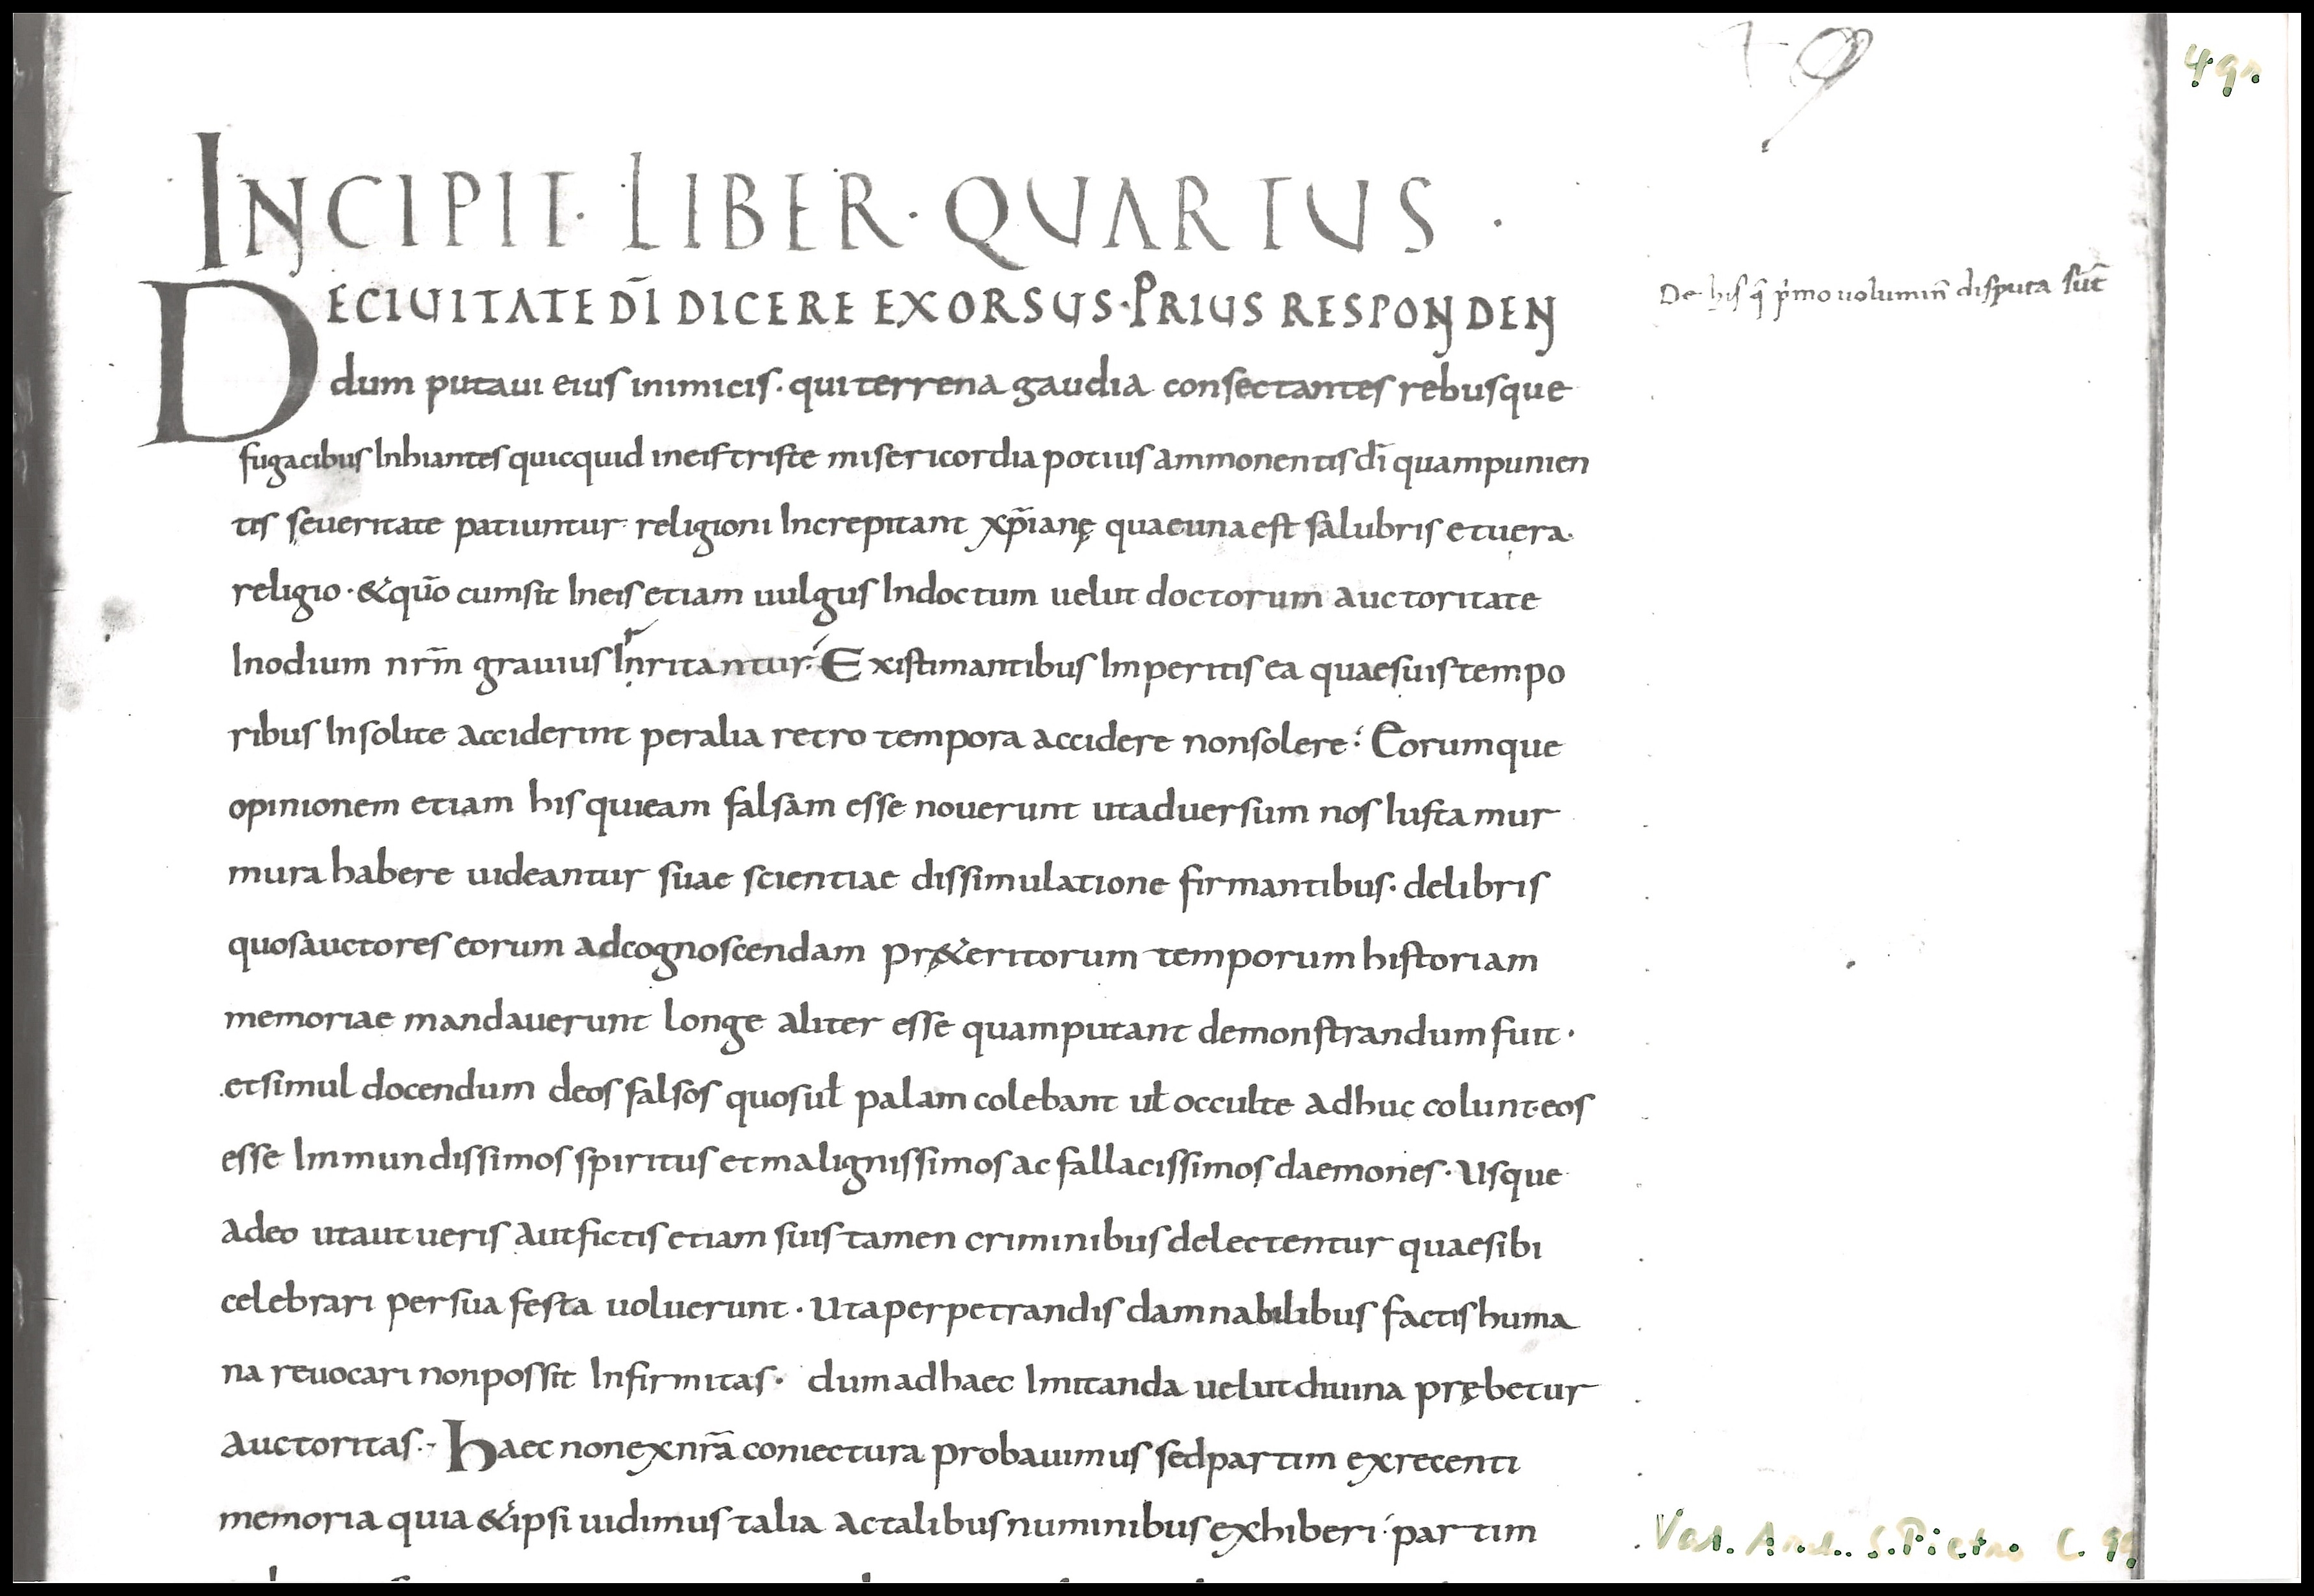 49r
INCIPIT · LIBER · QUARTUS ·
DE CIUITATE DI̅ DICERE EXORSUS · PRIUS RESPONDEN
De his q̄ p̄mo uolumin̄ disputa sūt
dum putaui eius inimicis · qui terrena gaudia consectantes rebusque
fugacibus Inhiantes quicquid ineis triste misericordia potius ammonentis di̅ quampunien
tis seueritate patiuntur · religioni Increpitant xp̅ianę quae una est salubris et uera ·
religio · & quo̅ cum sit Ineis etiam uulgus Indoctum uelut doctorum auctoritate
Inodium nrm̅ grauius Inritantur · Existimantibus Imperitis ea quae suis tempo
ribus Insolite acciderint per alia retro tempora accidere non solere · Eorumque
opinionem etiam his qui eam falsam esse nouerunt ut aduersum nos Iusta mur
mura habere uideantur suae scientiae dissimulatione firmantibus · de libris
quos auctores eorum ad cognoscendam pr&̨eritorum temporum historiam
memoriae mandauerunt longe aliter esse quam putant demonstrandum fuit ·
et simul docendum deos falsos quos uł palam colebant uł occulte adhuc colunt · eos
esse Immundissimos spiritus et malignissimos ac fallacissimos daemones · Usque
adeo ut aut ueris aut fictis etiam suis tamen criminibus delectentur quae sibi
celebrari per sua festa uoluerunt · Ut a perpetrandis damnabilibus factis huma
na reuocari non possit Infirmitas · dum ad haec Imitanda uelut diuina prębetur
auctoritas · Haec non ex nra̅ coniectura probauimus sed partim ex recenti
memoria quia & ipsi uidimus talia ac talibus numinibus exhiberi · partim
Vat. Arch. S. Pietro C. 99